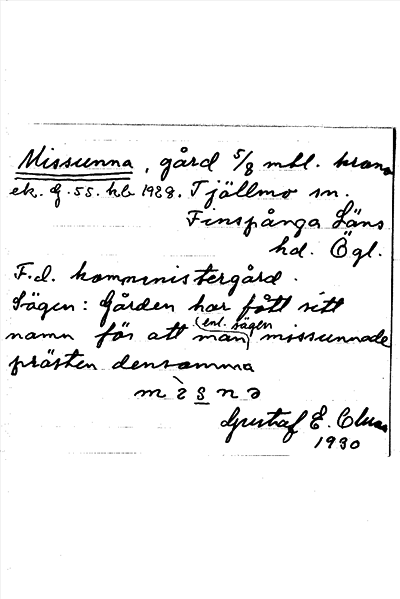 Missunna, gård 5/8 mtl. krono
ek. f. 55. hb 1928. Tjällmo sn.
Finspånga Läns
hd. Ögl.
F.d. komministergård.
Sägen: Gården har fått sitt
namn för att man (enl. sägen) missunnade
prästen densamma
Gustaf E.
1930